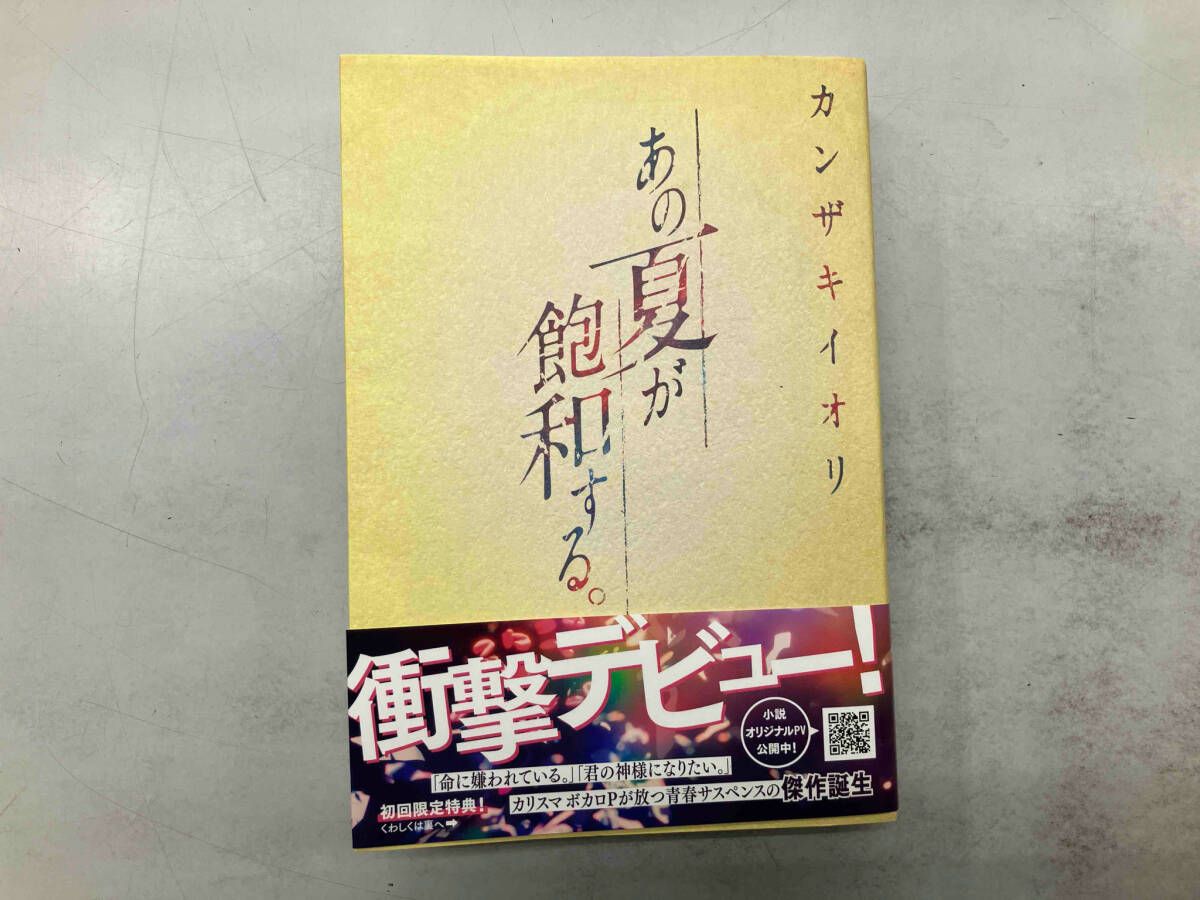 カンザキイオリ
あの夏が
飽和する。
衝撃デビュー！
小説
オリジナルPV
公開中！
「命に嫌われている。」「君の神様になりたい。」
カリスマ ボカロPが放つ青春サスペンスの傑作誕生
初回限定特典！
くわしくは裏へ➡